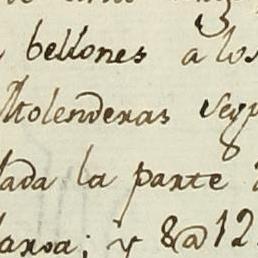 bellones a los
Molenderas segu
lada la parte
laroa; y 8@12